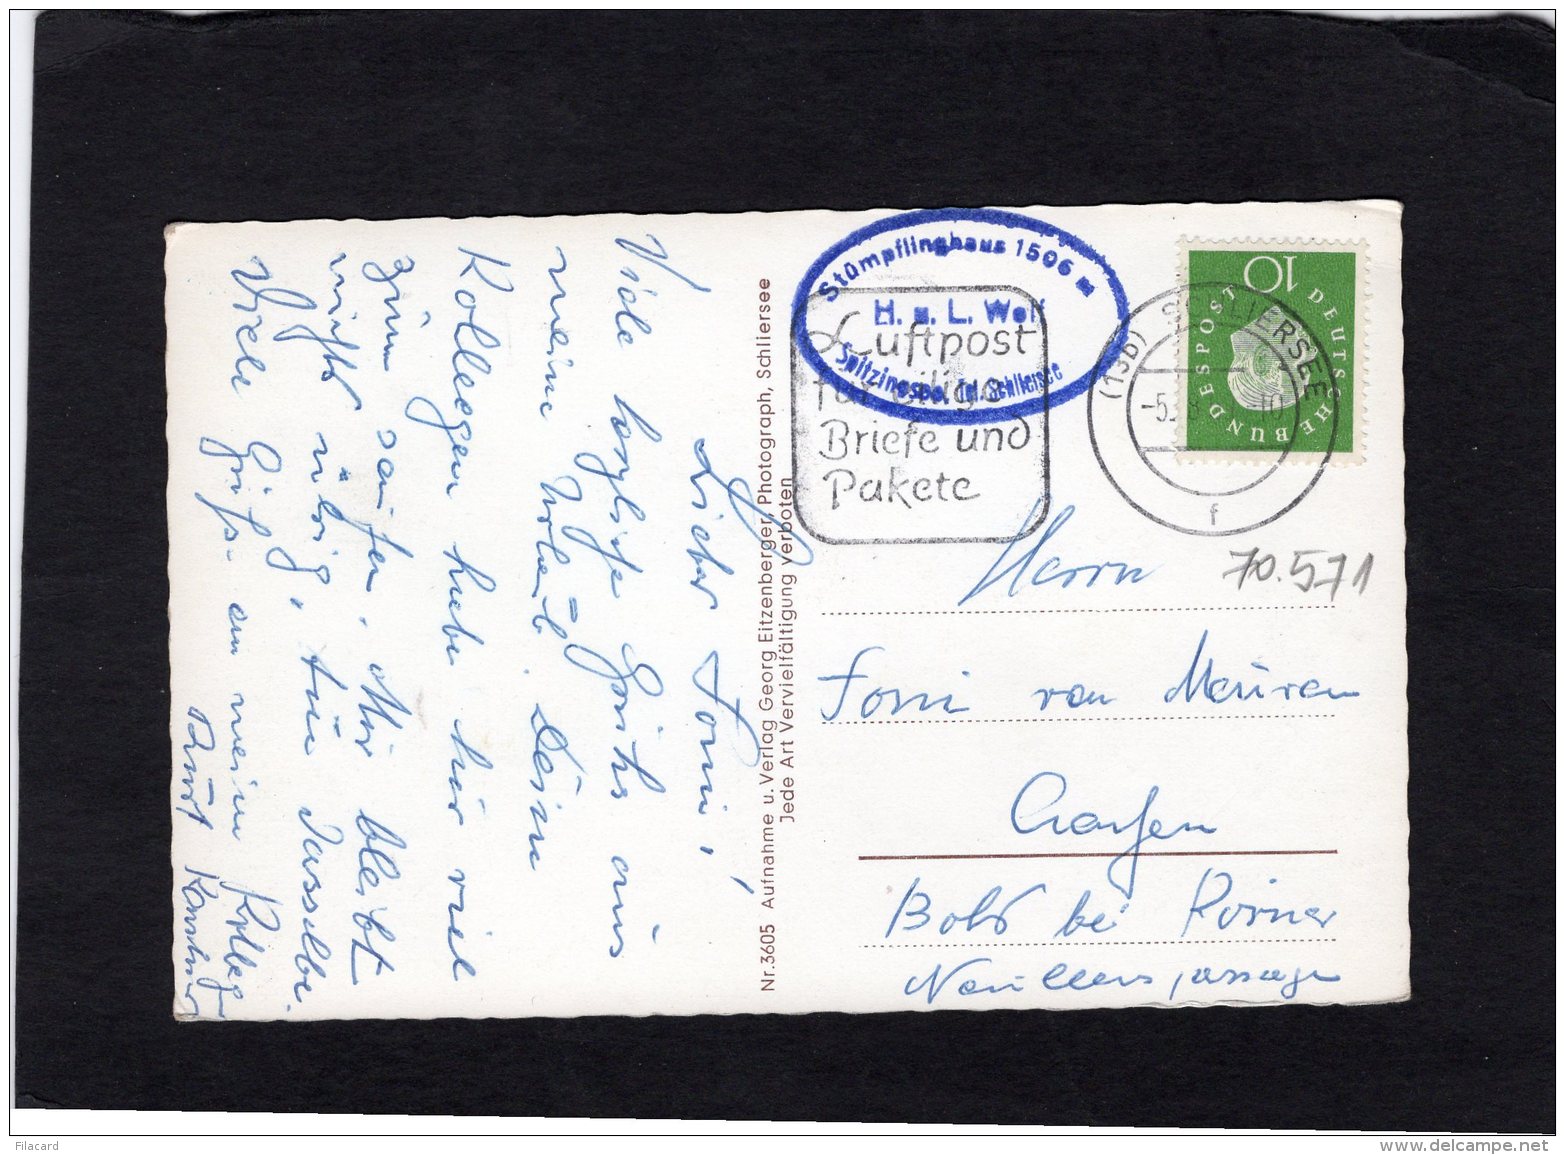 Lieber Toni,!
Viele herzliche Grüße aus
meinem Urlaub. Deine
Kollegen habe hier viel
zum saufen. Mir bleibt
nichts übrig, tue dasselbe.
Viele Grüße an meine Kolleg.
Kurt
Nr. 3605 Aufnahme u. Verlag Georg Eitzenberger, Photograph, Schliersee
Jede Art Vervielfältigung verboten
Stümpflinghaus 1506 m
H. u. L. Wolf
Spitzingsee, Tel. Schliersee
Luftpost
für eilige
Briefe und
Pakete
(13b) SCHLIERSEE
-5. 10
f
10
DEUTSCHE BUNDESPOST
70.571
Herrn
Toni von Meuren
Aachen
bei
Filacard
www.delcampe.net